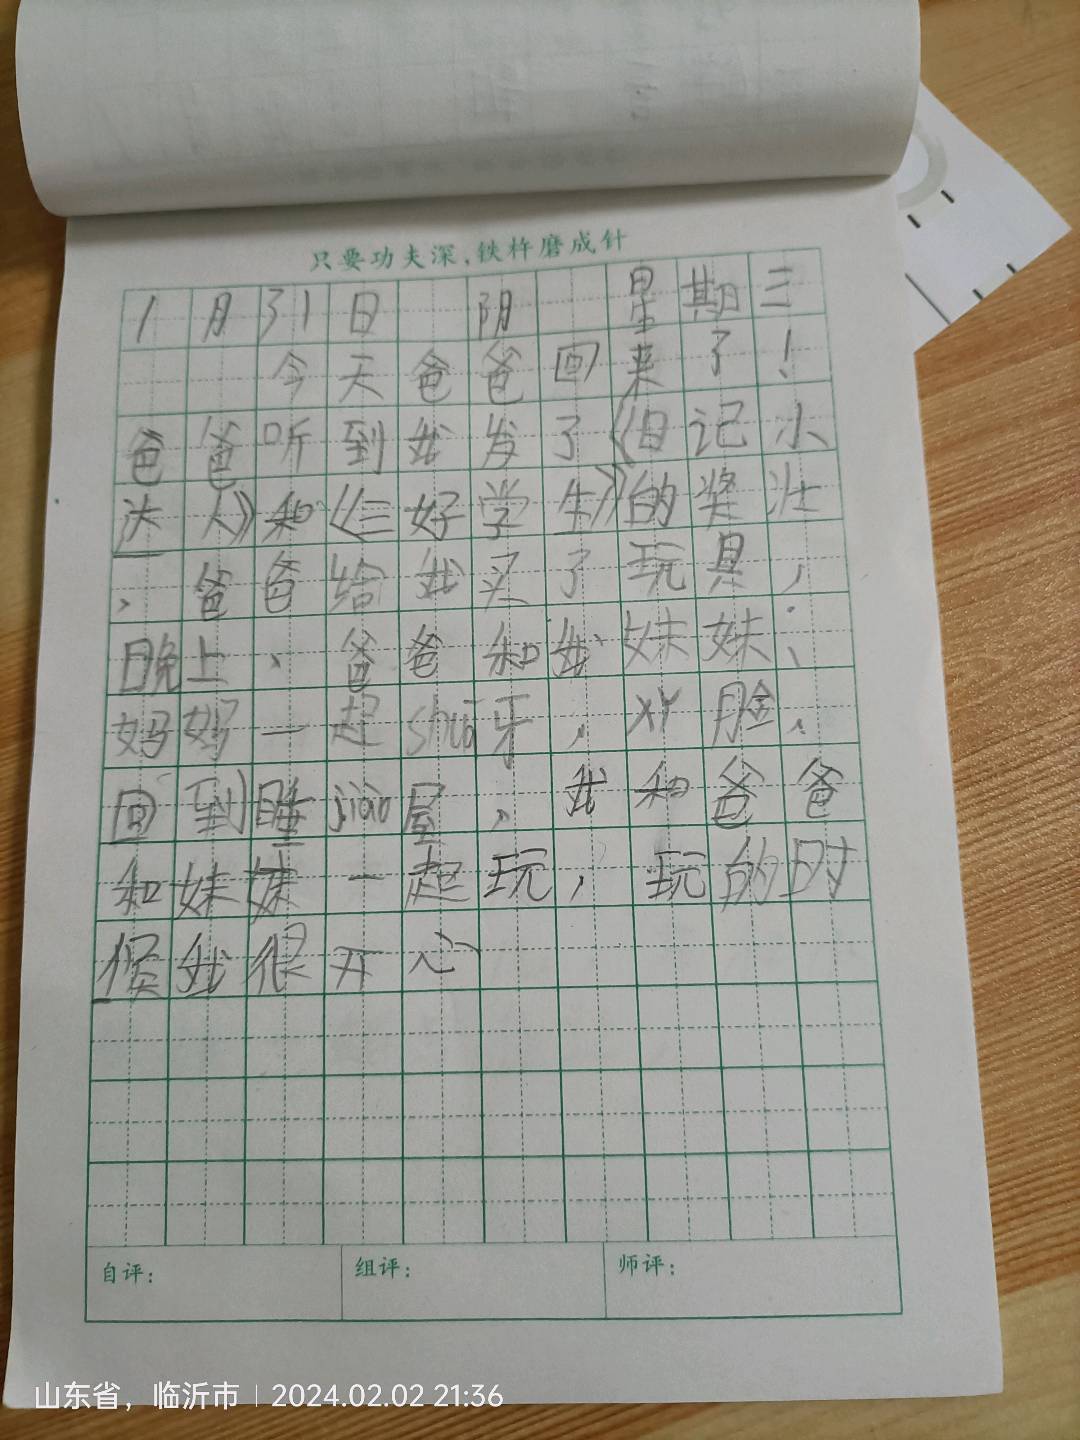 只要功夫深,铁杵磨成针
1月31日 阴 星期三
今天爸爸回来了!
爸爸听到我发了《日记小
达人》和《三好学生》的奖壮
,爸爸给我买了玩具,
晚上,爸爸和我妹妹、
妈妈一起shuā牙,xy脸,
回到睡jiao屋,我和爸爸
和妹妹一起玩,玩的时
候我很开心
自评: 组评: 师评:
山东省，临沂市 | 2024.02.02 21:36